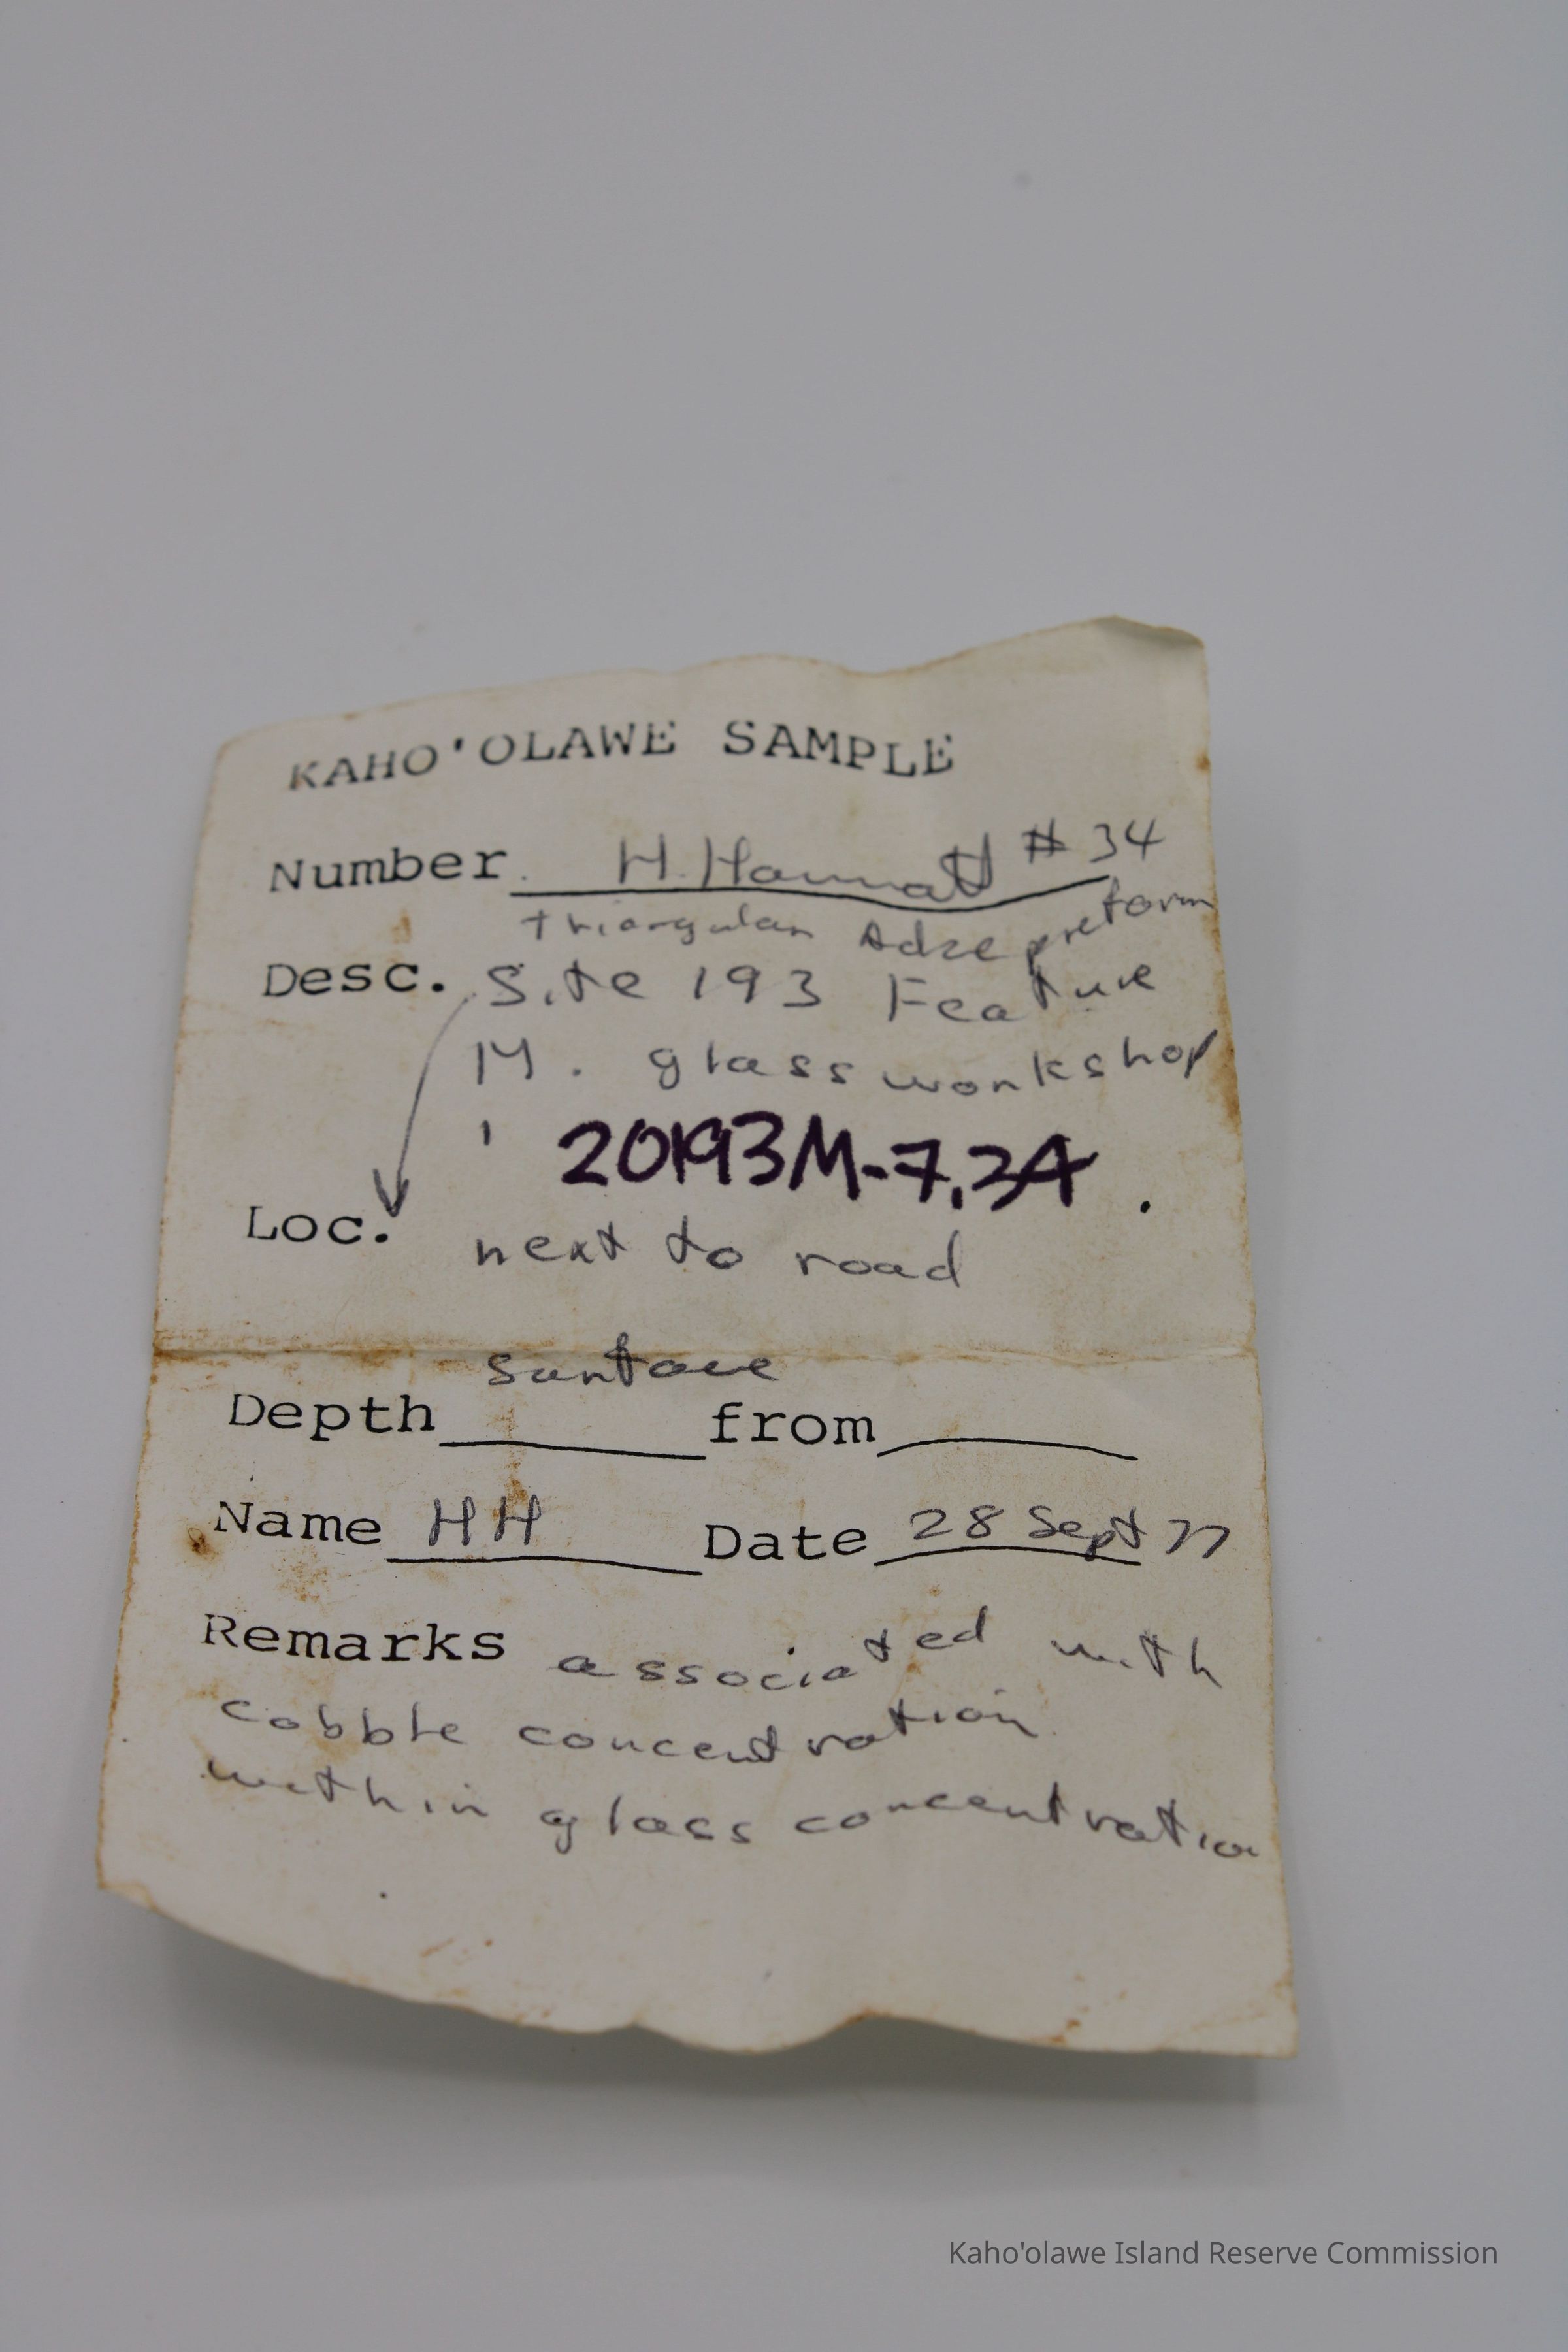 KAHO'OLAWE SAMPLE
Number H. Hammatt # 34
triangular Adze preform
Desc. Site 193 Feature
M. glass workshop
20193M-7,34
Loc. next to road
surface
Depth from
Name HH Date 28 Sept 77
Remarks associated with
cobble concentration
within glass concentration
Kaho'olawe Island Reserve Commission